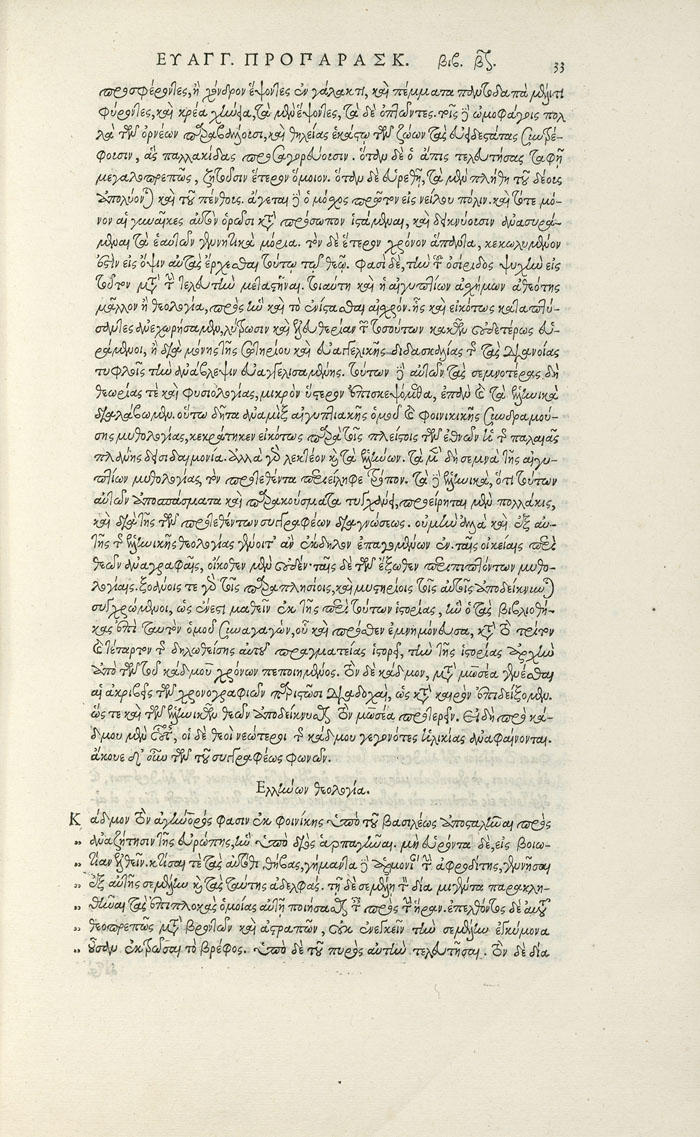 ΕΥΑΓΓ. ΠΡΟΠΑΡΑΣΚ. βιβ. β. 33
προσφέροντες, ἢ χόνδρον ἕψοντες ἐν γάλακτι, καὶ πέμματα παντοδαπὰ μέλιτι
φύροντες, καὶ κρέα χήνεια, τὰ μὲν ἕψοντες, τὰ δὲ ὀπτῶντες. τοῖς δὲ ὠμοφάγοις πολ-
λὰ τῶν ὀρνέων παραβάλλουσι, καὶ θηλείας ἑκάστῳ τῶν ζώων τὰς εὐειδεστάτας συντρέ-
φουσιν, ἃς παλλακίδας προσαγορεύουσιν. ὅταν δὲ ὁ ἄπις τελευτήσας ταφῇ
μεγαλοπρεπῶς, ζητοῦσιν ἕτερον ὅμοιον. ὅταν δὲ εὑρεθῇ, τὰ μὲν πλήθη τοῦ δέους
ἀπολύονται καὶ τοῦ πένθους. ἄγεται δὲ ὁ μόσχος πρῶτον εἰς νείλου πόλιν. καὶ τότε μό-
νον αἱ γυναῖκες αὐτὸν ὁρῶσι κατὰ πρόσωπον ἱστάμεναι, καὶ δεικνύουσιν ἀνασυρά-
μεναι τὰ ἑαυτῶν γεννητικὰ μόρια. τὸν δὲ ἕτερον χρόνον ἅπαντα, κεκωλυμένον
ἐστὶν εἰς ὄψιν αὐτὰς ἔρχεσθαι τούτῳ τῷ θεῷ. φασὶ δὲ, τὴν τοῦ ὀσίριδος ψυχὴν εἰς
τοῦτον μετὰ τὴν τελευτὴν μεταστῆναι. τοιαύτη καὶ ἡ αἰγυπτίων ἀσχήμων ἀθεότης
μᾶλλον ἢ θεολογία, πρὸς ἣν καὶ τὸ ἐνίστασθαι αἰσχρόν. ἧς καὶ εἰκότως καταπτύ-
σαντες ἀνεχωρήσαμεν, λύτρωσιν καὶ ἐλευθερίαν τῶν τοσούτων κακῶν οὐδετέρως εὑ-
ράμενοι, ἢ διὰ μόνης τῆς σωτηρίου καὶ εὐαγγελικῆς διδασκαλίας τῆς τὰς διανοίας
τυφλοῖς τὴν ἀνάβλεψιν εὐαγγελισαμένης. τούτων δὲ αὐτῶν τὰς σεμνοτέρας δὴ
θεωρίας τε καὶ φυσιολογίας, μικρὸν ὕστερον ἐπισκεψόμεθα, ἐπὰν καὶ τὰ ἑλληνικὰ
διαλάβωμεν. οὕτω δῆτα ἀναμὶξ αἰγυπτιακῆς ὁμοῦ καὶ φοινικικῆς συνδραμού-
σης μυθολογίας, κεκράτηκεν εἰκότως παρὰ τοῖς πλείστοις τῶν ἐθνῶν ἡ τῆς παλαιᾶς
πλάνης δεισιδαιμονία. ἀλλὰ γὰρ λεκτέον καὶ τὰ ἑλλήνων. τὰ μὲν δὴ σεμνὰ τῆς αἰγυ-
πτίων μυθολογίας τὸν προτεθέντα περιείληφε τρόπον. τὰ δὲ ἑλληνικὰ, ὅτι τούτων
αὐτῶν ἀποσπάσματα καὶ παρακούσματα τυγχάνει, προείρηται μὲν πολλάκις,
καὶ διὰ τῆς τῶν προτεθέντων συγγραφέων διαγνώσεως. οὐ μὴν ἀλλὰ καὶ ἐξ αὐ-
τῆς τῆς ἑλληνικῆς θεολογίας γένοιτ' ἂν ἔκδηλον ἐπαγομένων ἐν ταῖς οἰκείαις περὶ
θεῶν ἀναγραφαῖς, οἴκοθεν μὲν οὐδὲν. ταῖς δὲ τῶν ἔξωθεν περιπιπτόντων μυθο-
λογίαις. ξοάνοις τε γὰρ τοῖς παραπλησίοις, καὶ μυστηρίοις τοῖς αὐτοῖς ἀποδείκνυνται
συγχρώμενοι, ὡς ἔνεστι μαθεῖν ἐκ τῆς περὶ τούτων ἱστορίας, ἣν ὁ τὰς βιβλιοθή-
κας ἐπὶ ταυτὸν ὁμοῦ συναγαγὼν, οὗ καὶ πρόσθεν ἐμνημόνευσα, κατὰ τὸ τρίτον
καὶ τέταρτον τῆς δηλωθείσης αὐτῷ πραγματείας ἱστορεῖ, τὴν τῆς ἱστορίας ἀρχὴν
ἀπὸ τῶν τοῦ κάδμου χρόνων πεποιημένος. τὸν δὲ κάδμον, μετὰ μωσέα γενέσθαι
αἱ ἀκριβεῖς τῶν χρονογραφιῶν παριστῶσι διαδοχαὶ, ὡς κατὰ καιρὸν ἐπιδείξομεν.
ὥς τε καὶ τῶν ἑλληνικῶν θεῶν ἀποδείκνυσθαι τὸν μωσέα πρότερον. εἰ δὴ πρὸ κά-
δμου μέν ἐστι, οἱ δὲ θεοὶ νεώτεροι τῆς κάδμου γεγονότες ἡλικίας ἀναφαίνονται.
ἄκουε δ' οὖν τῶν τοῦ συγγραφέως φωνῶν.
Ἑλλήνων θεολογία.
Κάδμον τὸν ἀγήνορός φασιν ἐκ φοινίκης ὑπὸ τοῦ βασιλέως ἀποσταλῆναι πρὸς
„ ἀναζήτησιν τῆς εὐρώπης, ἣν ὑπὸ διὸς ἁρπαγῆναι. μὴ εὑρόντα δὲ, εἰς βοιω-
„ τίαν ἐλθεῖν. κτίσαι τε τὰς αὐτόθι θήβας, γήμαντα δὲ ἁρμονίαν τὴν ἀφροδίτης, γεννῆσαι
„ ἐξ αὐτῆς σεμέλην καὶ τὰς ταύτης ἀδελφάς. τῇ δὲ σεμέλῃ τὸν δία μιγέντα παρακλη-
„ θῆναι τὰς ἐπιπλοκὰς ὁμοίας αὐτῇ ποιήσασθαι ταῖς πρὸς τὴν ἥραν. ἐπελθόντος δὲ αὐτοῦ
„ θεοπρεπῶς μετὰ βροντῶν καὶ ἀστραπῶν, οὐκ ἐνεγκεῖν τὴν σεμέλην ἐγκύμονα
„ οὖσαν ἐκτρῶσαι τὸ βρέφος. ὑπὸ δὲ τοῦ πυρὸς αὐτὴν τελευτῆσαι. τὸν δὲ δία